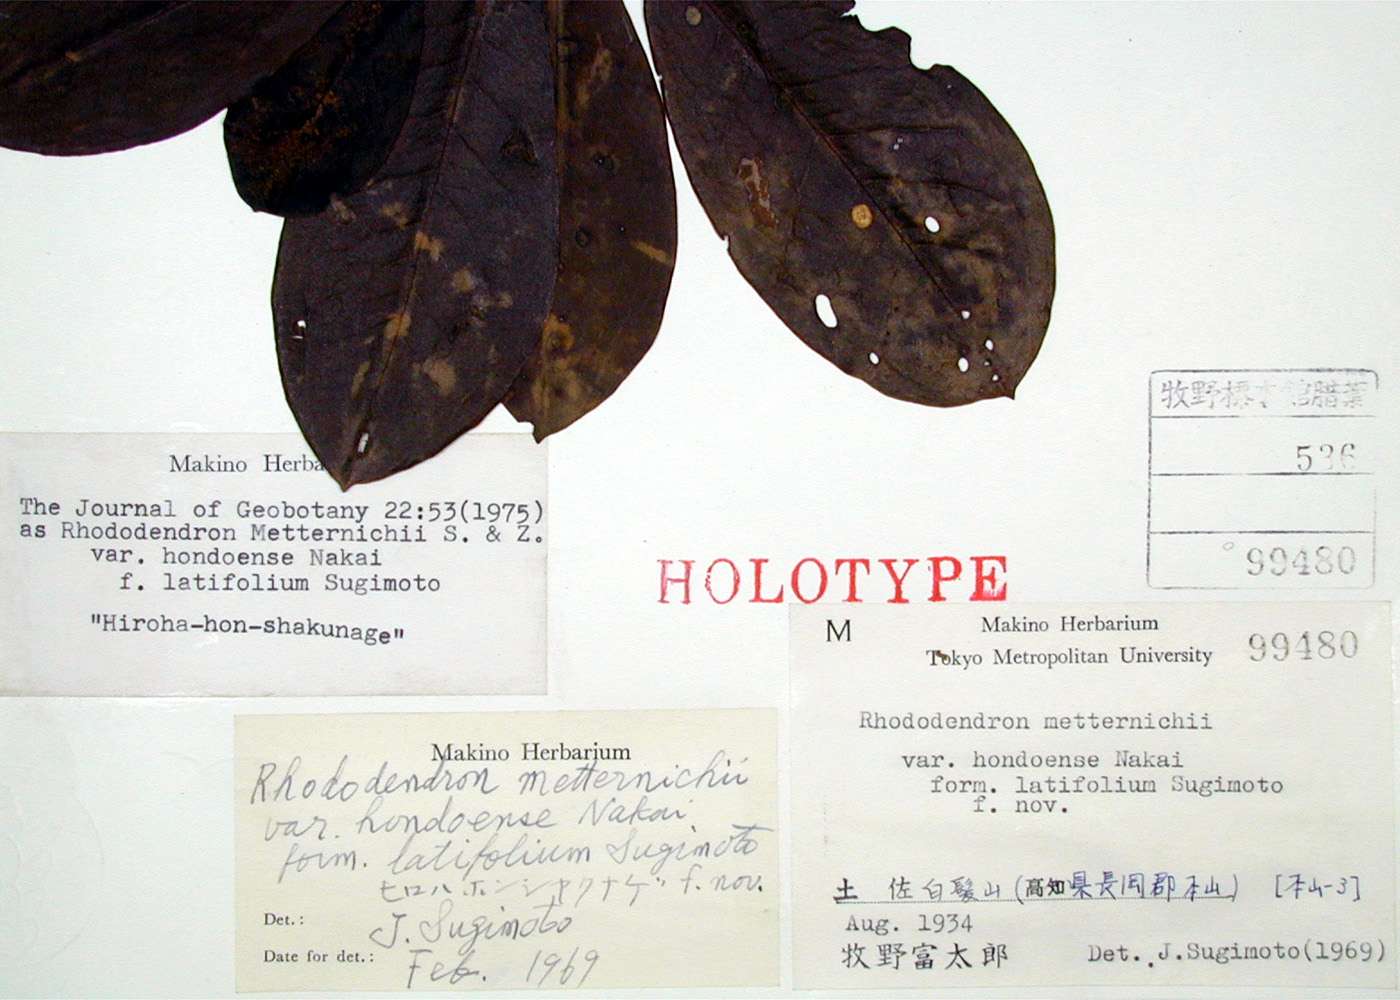 牧野標本館腊葉
536
99480
Makino Herba
The Journal of Geobotany 22:53(1975)
as Rhododendron Metternichii S. & Z.
var. hondoense Nakai
f. latifolium Sugimoto
"Hiroha-hon-shakunage"
HOLOTYPE
M
Makino Herbarium
Tokyo Metropolitan University
99480
Rhododendron metternichii
var. hondoense Nakai
form. latifolium Sugimoto
f. nov.
土 佐 白髪山 (高知県長岡郡本山) [本山-3]
Aug. 1934
牧野富太郎 Det. J.Sugimoto(1969)
Makino Herbarium
Rhododendron metternichii
var. hondoense Nakai
form. latifolium Sugimoto
ヒロハホンシャクナゲ f. nov.
Det.: J. Sugimoto
Date for det.: Feb. 1969